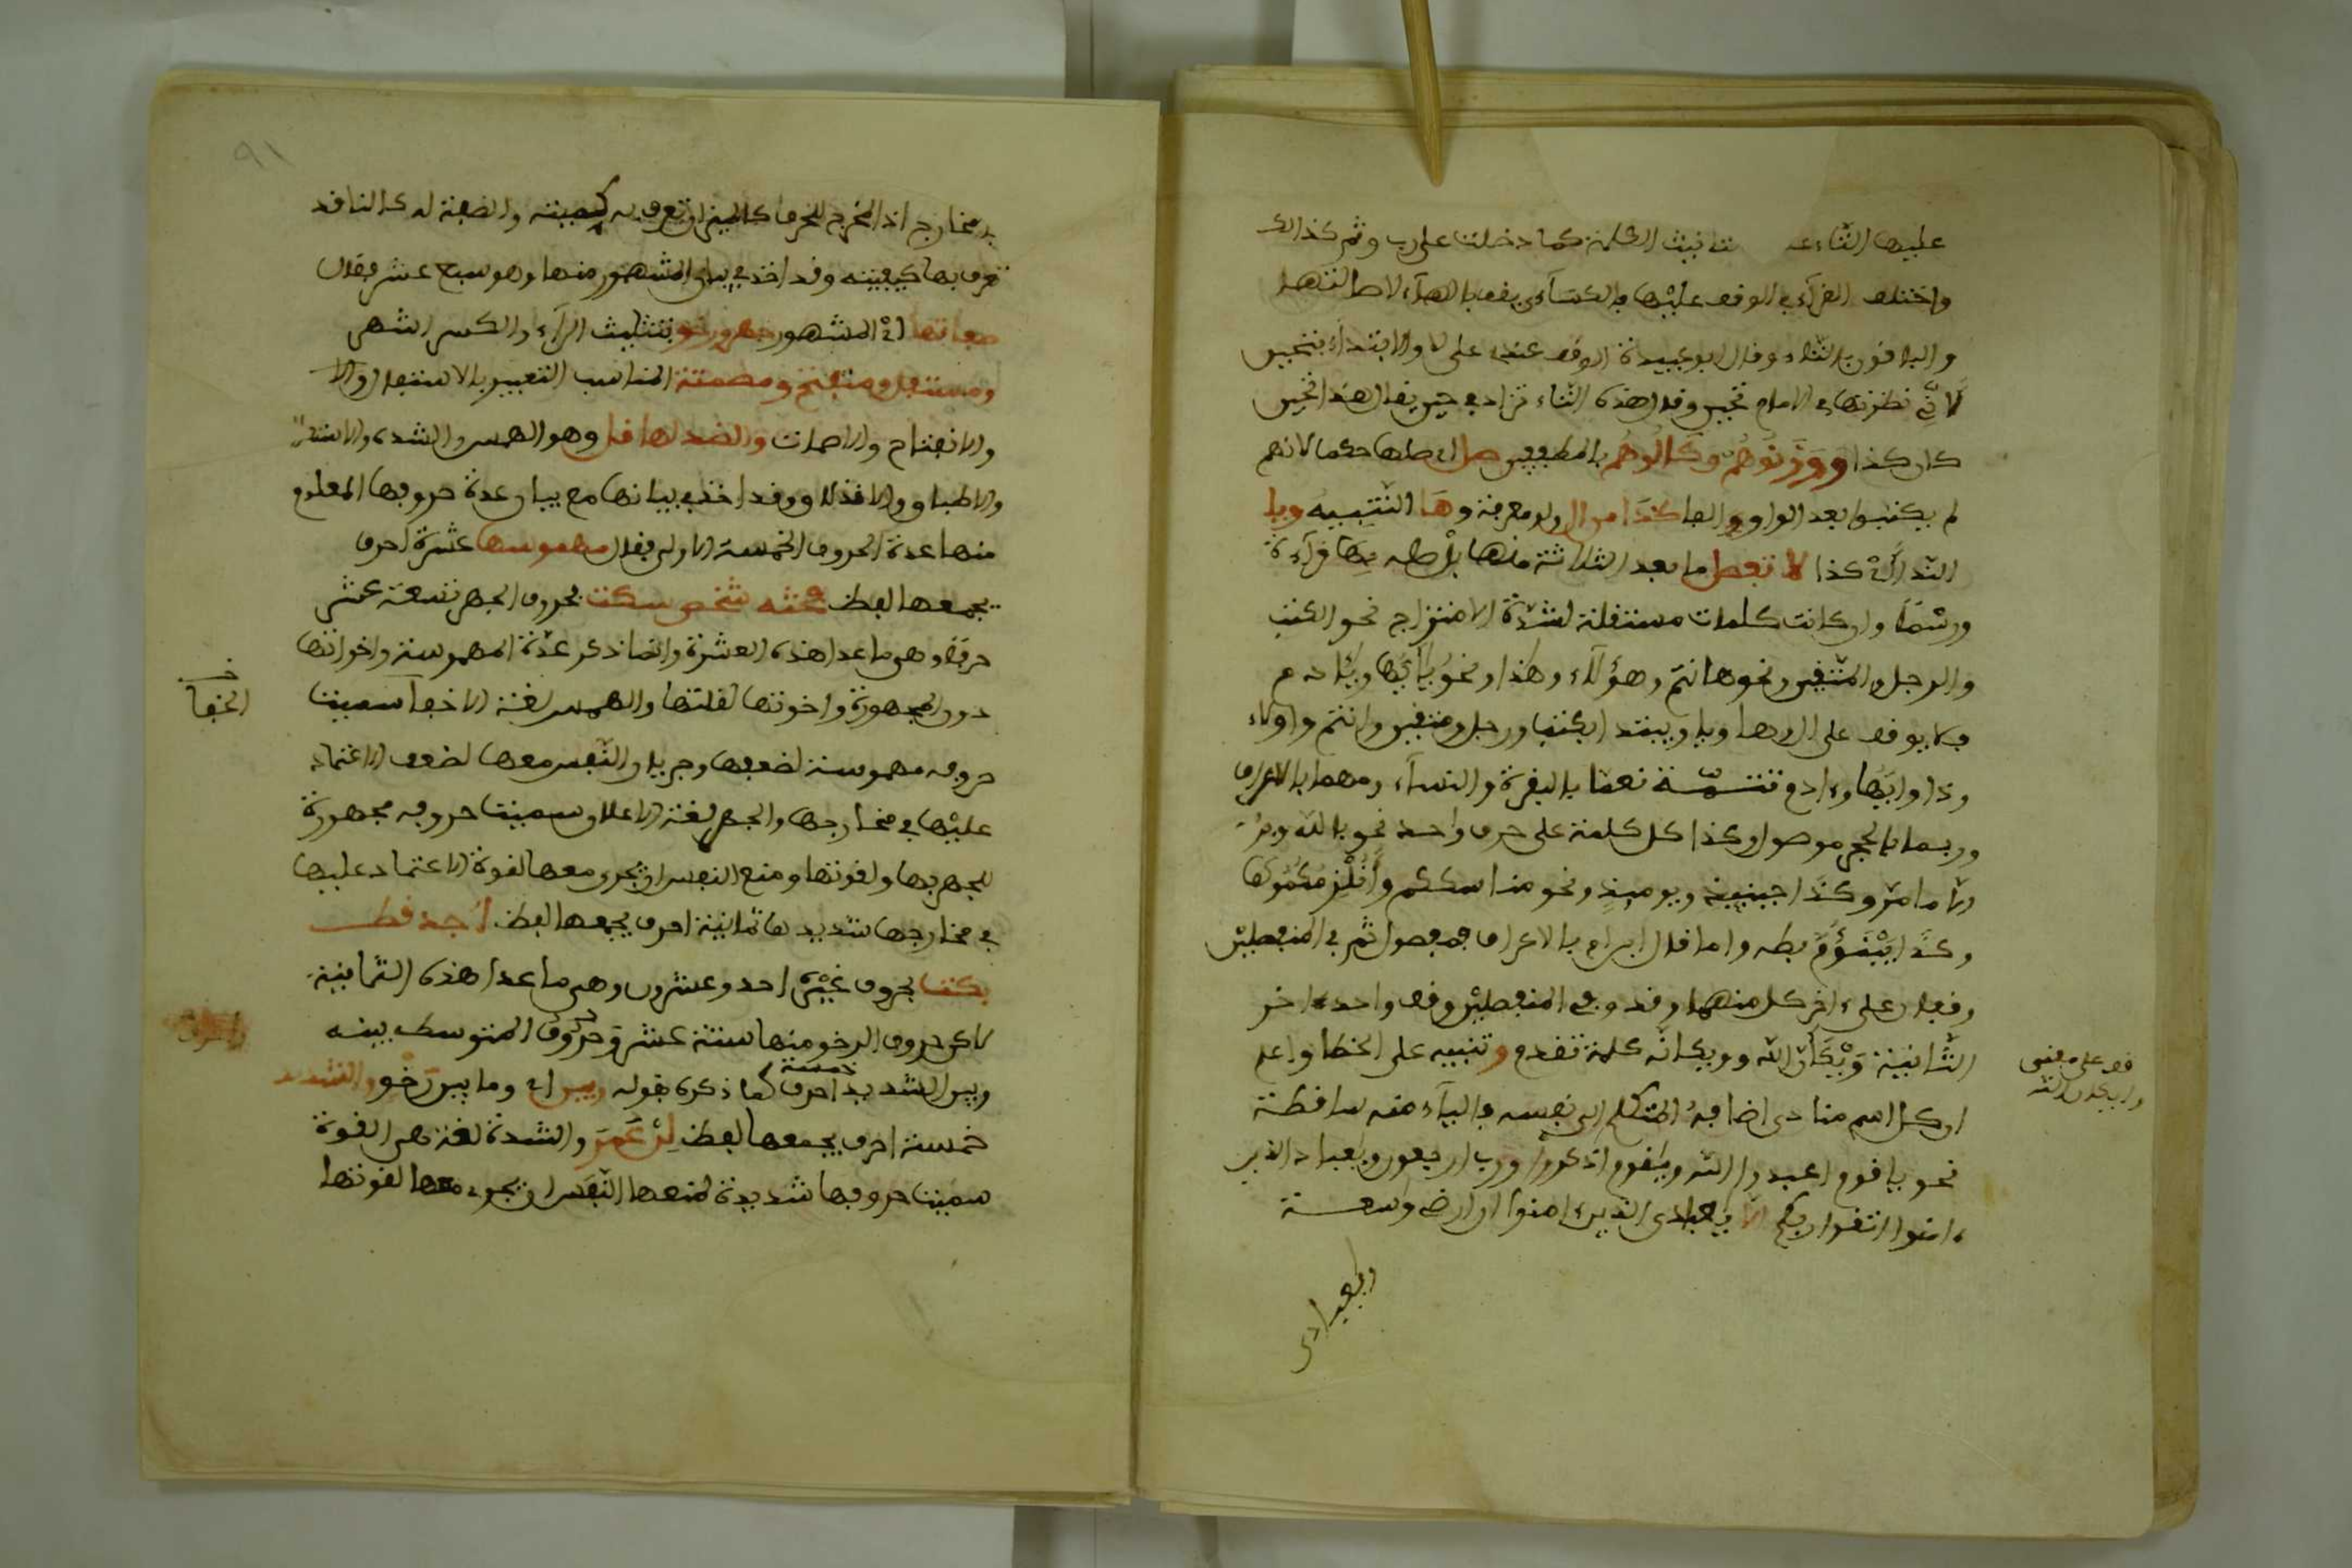 عليها التاء لتانيث الكلمة كما دخلت على رب وثم كذلك
واختلف القرآء في الوقف عليها فالكسآءي يقف بالهآء لاصالتها
والباقون بالتاء وقال ابو عبيدة الوقف عنده على لا والابتدآء بتحين
لانّي نظرتها في الامام تحين وقال هذه التاء تزاد في حين يقال هذا تحين
كان كذا ووَزَنُوهُم وكالُوهُم بالمطففين صل اي صلها حكما لانهم
لم يكتبوا بعد الواو الفا كذا من ال ولو معرفة وهَا التنبيه ويا
الندا اي كذا لا تفصل ما بعد الثلاثة منها بل صله بها قرآءة
ورسمًا وان كانت كلمات مستقلة لشدة الامتزاج نحو الكتب
والرجل والمتقين ونحو هانتم وهؤلاء وهذا ونحو ياأيها ويادم
فلا يوقف على ال وها ويا ويبتدا بكتب ورجل ومتقين وانتم واولاء
وذا وايها وءادم تتمة نعما بالبقرة والنساء ومهما بالاعراف
وربما بالحجر موصول وكذا كل كلمة على حرف واحد نحو بالله وبه
الا ما مر وكذا حينئذ ويومئذ ونحو مناسككم وأنلزمكموها
وكذا يبنؤمّ بطه واما قال ابن ام بالاعراف فمفصول ثم في المنفصلين
وقف على ءاخر كل منهما وقد وفي المنفصلين وقف واحد ءاخر
الثانية وَيْكَأنّ الله وويكانّه كلمة تقدم وتنبيه على الخطا واعلم
ان كل اسم منادى اضافهُ المتكلم الى نفسه فاليآء منه ساقطة
نحو ياقوم اعبدوا الله ويقوم اذكروا ورب ارجعون ويعباد الذين
ءامنوا اتقوا ربكم الا يعبادى الذين ءامنوا ان ارضي واسعة
ويعبادى
قف على معنى
ويكان الله
٩١
بد مخارج اذ المخرج للحرف كالميزان تعرف به كميته والصفة له كالناقد
تعرف بها كيفيته وقد اخذ في بيان المشهور منها وهو سبع عشر فقال
صفاتها اي المشهور جهر ورخو بتثليث الرآء والكسر اشهر
ومستفل ومنفتح ومصمتة المناسب التعبير بالاستفال والا
والانفتاح والاصمات والضد لها قل وهو الهمس والشدة والاستعلا
والاطباق والاذلاق وقد اخذ في بيانها مع بيان عدة حروفها المعلوم
منها عدة الحروف الخمسة الاولى فقال مهموسها عشرة احرف
يجمعها لفظ فحثه شخص سكت فحروف الجهر تسعة عشر
حرفا وهي ما عدا هذه العشرة وانما ذكر عدّة المهموسة واخواتها
دون المجهورة واخوتها لقلتها والهمس لغة الاخفآ سميت
حروفه مهموسة لضعفها وجريان النّفس معها لضعف الاعتماد
عليها في مخارجها والجهر لغة الاعلان سميت حروفه مجهورة
للجهر بها ولقوتها ومنع النفس ان يجري معها لقوة الاعتماد عليها
في مخارجها شديدها ثمانية احرف يجمعها لفظ اجد قط
بكت فحروف غيره احد وعشرون وهي ما عدا هذه الثمانية
لاكن حروف الرخو منها ستة عشر وحروف المتوسط بينه
وبين الشديد خمسة احرف كما ذكره بقوله وبين اي وما بين رَخْو والشديد
خمسة احرف يجمعها لفظ لِنْ عُمَرَ والشدة لغة هي القوة
سميت حروفها شديدة لمنعها النّفس ان يجري معها لقوتها
خـ
الخفا